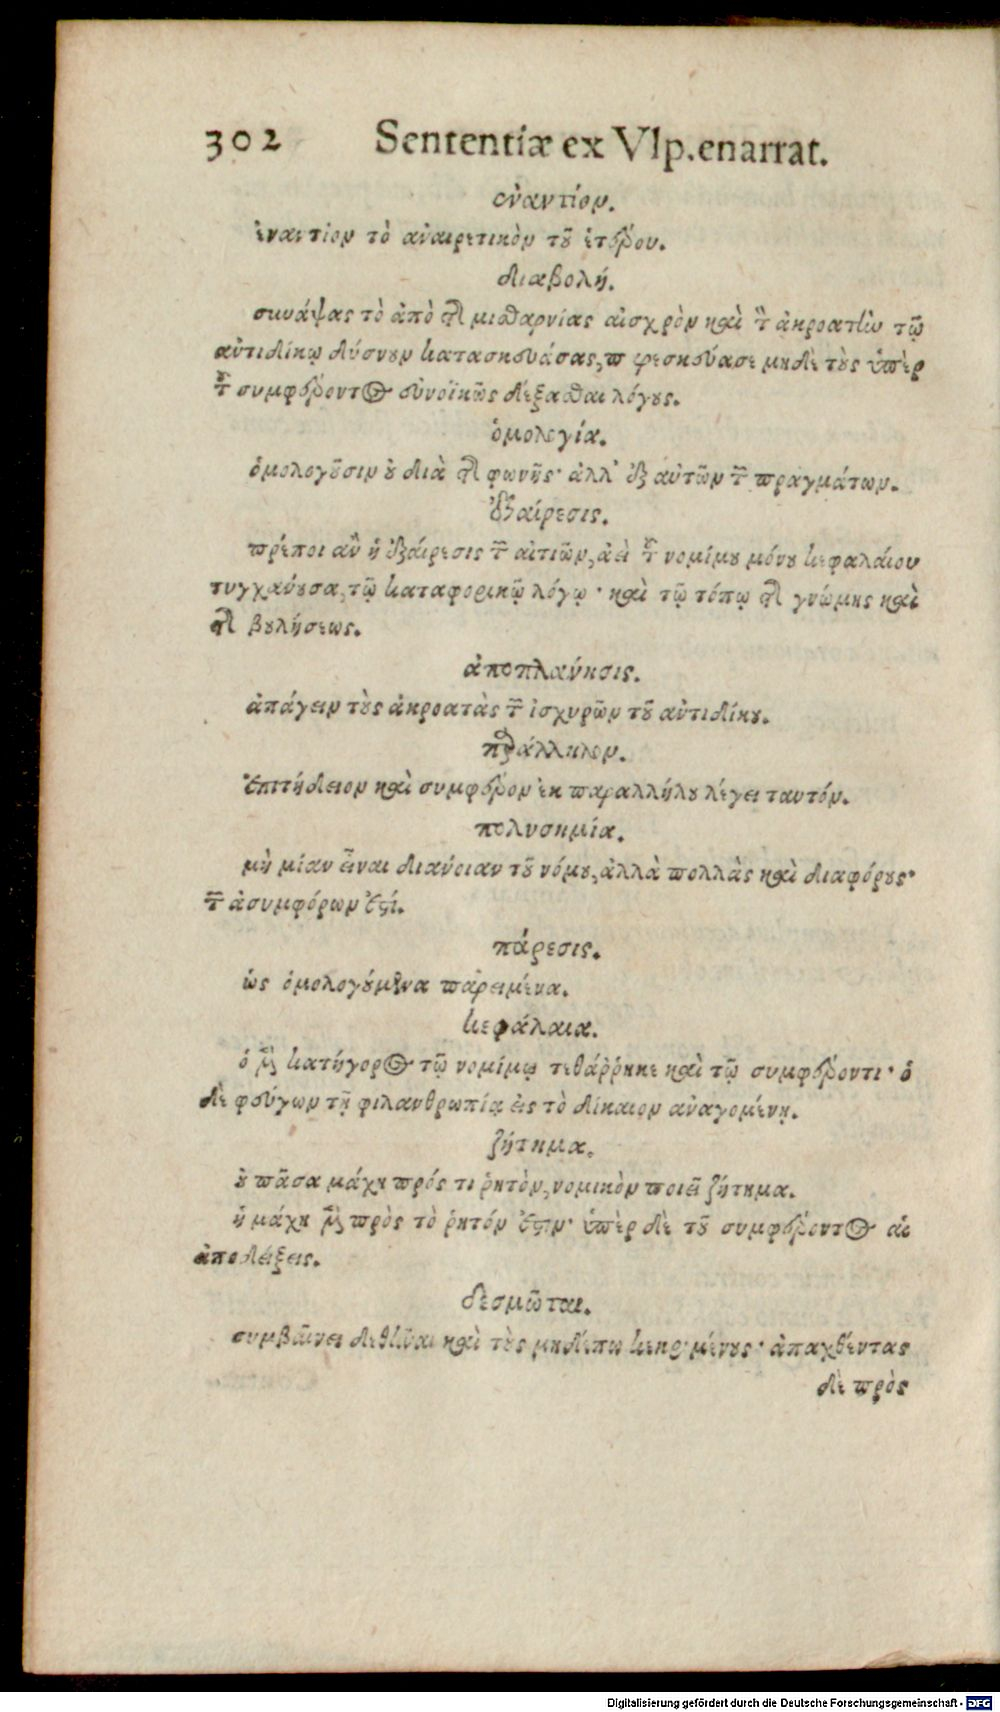 302 Sententiæ ex Vlp.enarrat.
ἐναντίον.
ἐναντίον τὸ ἀναιρετικὸν τοῦ ἑτέρου.
διαβολή.
συνάψας τὸ ἀπὸ τῆς μισθαρνίας αἰσχρὸν καὶ τὸν ἀκροατὴν τῷ
ἀντιδίκῳ δύσνουν κατασκευάσας, παρεσκεύασε μηδὲ τοὺς ὑπὲρ
τοῦ συμφέροντος εὐνοϊκῶς δέξασθαι λόγους.
ὁμολογία.
ὁμολογοῦσιν οὐ διὰ τῆς φωνῆς· ἀλλ' ἐξ αὐτῶν τῶν πραγμάτων.
ἐξαίρεσις.
πρέποι ἂν ἡ ἐξαίρεσις τῶν αἰτιῶν, ἀεὶ τοῦ νομίμου μόνου κεφαλαίου
τυγχάνουσα, τῷ καταφορικῷ λόγῳ· καὶ τῷ τόπῳ τῆς γνώμης καὶ
τῆς βουλήσεως.
ἀποπλάνησις.
ἀπάγειν τοὺς ἀκροατὰς τῶν ἰσχυρῶν τοῦ ἀντιδίκου.
παράλληλον.
ἐπιτήδειον καὶ συμφέρον ἐκ παραλλήλου λέγει ταυτόν.
πολυσημία.
μὴ μίαν εἶναι διάνοιαν τοῦ νόμου, ἀλλὰ πολλὰς καὶ διαφόρους·
τῶν ἀσυμφόρων ἐστί.
πάρεσις.
ὡς ὁμολογούμενα παρειμένα.
κεφάλαια.
ὁ μὲν κατήγορος τῷ νομίμῳ τεθάρρηκε καὶ τῷ συμφέροντι· ὁ
δὲ φεύγων τῇ φιλανθρωπίᾳ εἰς τὸ δίκαιον ἀναγομένῃ.
ζήτημα.
οὐ πᾶσα μάχη πρός τι ῥητὸν, νομικὸν ποιεῖ ζήτημα.
ἡ μάχη μὲν πρὸς τὸ ῥητόν ἐστιν· ὑπὲρ δὲ τοῦ συμφέροντος αἱ
ἀποδείξεις.
δεσμῶται.
συμβαίνει δεθῆναι καὶ τοὺς μηδέπω κεκριμένους· ἀπαχθέντας
δὲ πρὸς
Digitalisierung gefördert durch die Deutsche Forschungsgemeinschaft - DFG